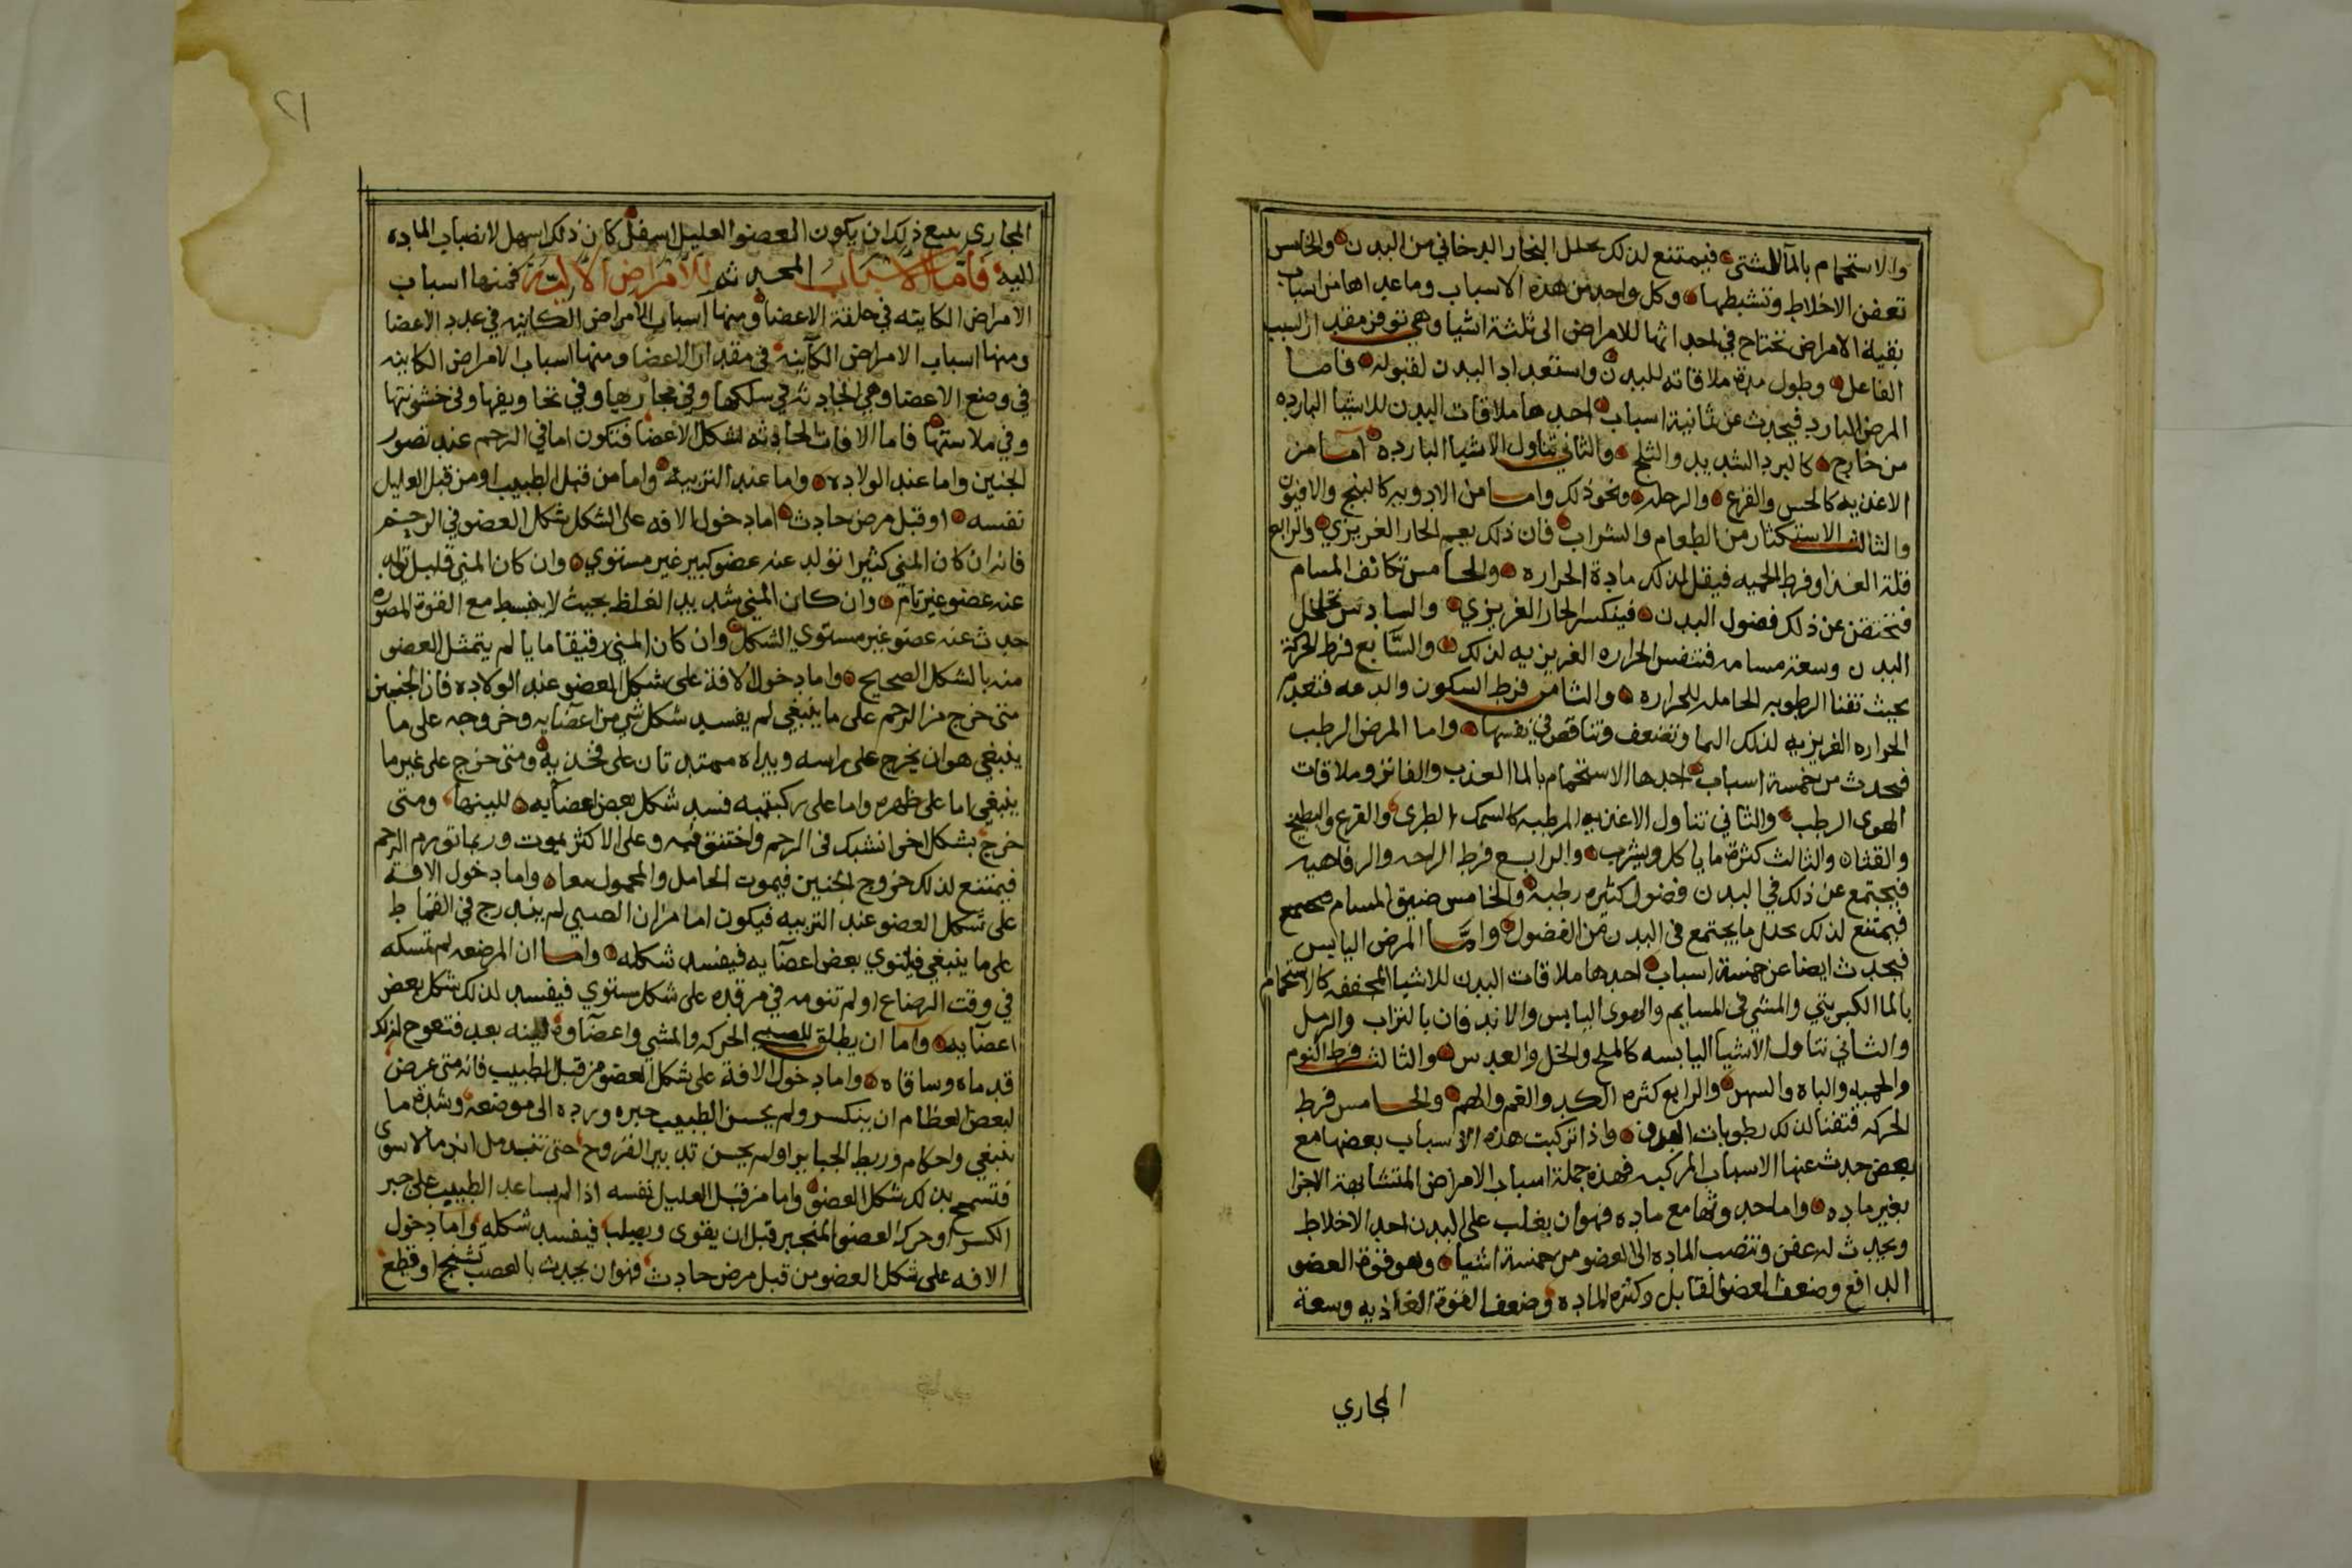 والاستحمام بالمآ الشتى فيمتنع لذلك تحلل البخار الدخاني من البدن والخامس
تعفن الاخلاط وتشيطها وكل واحد من هذه الاسباب وما عداها من اسباب
بقية الامراض تحتاج في احداثها للامراض الى ثلثة اشيا وهي توفر مقدار السبب
الفاعل وطول مدة ملاقاته للبدن واستعداد البدن لقبوله فاما
المرض البارد فيحدث عن ثمانية اسباب احدها ملاقات البدن للاشيا البارده
من خارج كالبرد الشديد والثلج والثاني تناول الاشيا البارده اما من
الاغذيه كالخس والقرع والرجله ونحو ذلك واما من الادويه كالبنج والافيون
والثالث الاستكثار من الطعام والشراب فان ذلك يعم الحار الغريزي والرابع
قلة الغذا وفرط الحميه فيقل لذلك مادة الحراره والخامس تكاثف المسام
فتختنق عن ذلك فضول البدن فينكسر الحار الغريزي والسادس تخلخل
البدن وسعة مسامه فتنفس الحراره الغريزيه لذلك والسابع فرط الحركة
بحيث تفنا الرطوبه الحامله للحراره والثامن فرط السكون والدعه فتعدم
الحراره الغريزيه لذلك النما وتضعف وتناقص في نفسها واما المرض الرطب
فيحدث من خمسة اسباب احدها الاستحمام بالما العذب والفاتر وملاقات
الهوى الرطب والثاني تناول الاغذيه المرطبه كالسمك الطرى والقرع والبطيخ
والقثاه والثالث كثرة ما ياكل ويشرب والرابع فرط الراحه والرفاهيه
فيجتمع عن ذلك في البدن فضول كثيره رطبة والخامس ضيق المسام
فيمتنع لذلك تحلل ما يجتمع في البدن من الفضول وامّا المرض اليابس
فيحدث ايضا عن خمسة اسباب احدها ملاقات البدن للاشيا المجففه كالاستحمام
بالما الكبريتي والمشي في السمايم والهوى اليابس والاندفان بالتراب والرمل
والثاني تناول الاشيا اليابسه كالملح والخل والعدس والثالث فرط النوم
والحميه والباه والسهر والرابع كثره الكد والغم والهم والخامس فرط
الحركه فتفنا لذلك رطوبات البدن واذا تركبت هذه الاسباب بعضها مع
بعض حدث عنها الاسباب المركبه فهذه جملة اسباب الامراض المتشابهة الاجزا
بغير ماده واما حدوثها مع ماده فهو ان يغلب على البدن احد الاخلاط
ويحدث له عفن وتنصب الماده الى العضو من خمسة اشيا وهو قوة العضو
الدافع وضعف العضو القابل وكثره الماده وضعف القوة الغاذيه وسعة
المجاري
٢١
المجاري مع ذلك ان يكون العضو العليل اسفل كان ذلك اسهل لانصباب الماده
اليه فاما الاسباب المحدثه للامراض الآليّة فمنها اسباب
الامراض الكاينه في خلقة الاعضا ومنها اسباب الامراض الكاينه في عدد الاعضا
ومنها اسباب الامراض الكآينه في مقدار الاعضا ومنها اسباب الامراض الكاينه
في وضع الاعضا وهي الحادثه في سلكها وفي مجاريها وفي تجاويفها وفي خشونتها
وفي ملاستها فاما الافات الحادثه لشكل الاعضا فتكون اما في الرحم عند تصور
الجنين واما عند الولاده واما عند التربية واما من قبل الطبيب او من قبل العليل
نفسه او قبل مرض حادث اما دخول الافه على الشكل شكل العضو في الرحم
فانه ان كان المني كثيرا تولد عنه عضو كبير غير مستوي وان كان المني قليل تولد
عنه عضو غير تام وان كان المني شديد الغلظ بحيث لا ينبسط مع القوة المصوره
حدث عنه عضو غير مستوي الشكل وان كان المني رقيقا مايا لم يتمثل العضو
منه بالشكل الصحيح واما دخول الافة على شكل العضو عند الولاده فان الجنين
متى خرج من الرحم على ما ينبغي لم يفسد شكل شي من اعضايه وخروجه على ما
ينبغي هو ان يخرج على راسه ويداه ممتدتان على فخذيه ومتى خرج على غير ما
ينبغي اما على ظهره واما على ركبتيه فسد شكل بعض اعضآيه للينها ومتى
خرج بشكل اخر انشبك في الرحم واختنق فيه وعلى الاكثر يموت وربما تورم الرحم
فيمتنع لذلك خروج الجنين فيموت الحامل والمحمول معا واما دخول الافة
على شكل العضو عند التربيه فيكون اما من ان الصبي لم يندرج في القماط
على ما ينبغي فيلتوي بعض اعضآيه فيفسد شكله واما ان المرضعه لم تمسكه
في وقت الرضاع او لم تنومه في مرقده على شكل مستوي فيفسد لذلك شكل بعض
اعضآيه وآما ان يطلق للصبي الحركه والمشي واعضآوه لينه بعد فتعوج لذلك
قدماه وساقاه واما دخول الافة على شكل العضو من قبل الطبيب فانه متى عرض
لبعض العظام ان ينكسر ولم يحسن الطبيب جبره ورده الى موضعه وشده ما
ينبغي واحكام وربط الجباير او لم يحسن تدبير القروح حتى تندمل
فتسمج بذلك شكل العضو واما من قبل العليل نفسه اذا لم يساعد الطبيب على جبر
الكسر او حركه العضو المنجبر قبل ان يقوى ويصلب فيفسد شكله واما دخول
الافه على شكل العضو من قبل مرض حادث فهو ان يحدث بالعصب تشنج او قطع